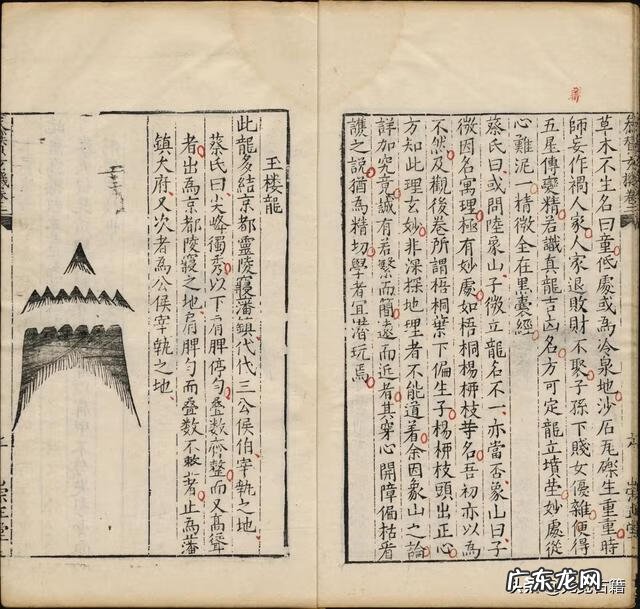 草木不生名曰童低處或為冷泉地沙石瓦礫生重重時
師妄作禍人家人家退敗財不聚子孫下賤女優雜便得
五星傳變精若識真龍吉凶名方可定龍立墳塋妙處從
心難泥一精微全在黑囊經
蔡氏曰或問陸象山子微立龍名不一亦當否象山曰子
微因名寓理極有妙處如梧桐楊栁枝等名吾初亦以為
不然及觀後卷所謂梧桐葉下偏生子楊栁枝頭出正心
方知此理玄妙非深探地理者不能道着余因象山之論
詳加究竟誠有若繁而簡遠而近者其穿心開障偏枯看
護之説猶為精切學者宜潜玩焉
玉楼龍
此龍多結京都靈陵寢藩鎮代代三公侯伯宰執之地
蔡氏曰尖峰獨秀以下肩脾停勻叠数齊整而又高聳
者出為京都陵寢之地肩脾勻而叠数不齊者止為藩
鎮大府又次者為公侯宰執之地
崇正堂
广东龙网